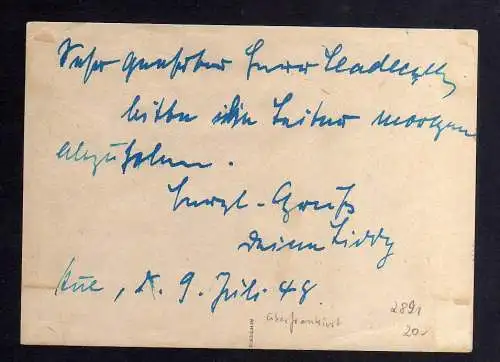 Sehr geehrter Herr
bitte die Leiter morgen
abzuholen.
Herzl. Gruß
Deine Liddy
Aue, d. 9. Juli 48
überfrankiert
2891
20,-